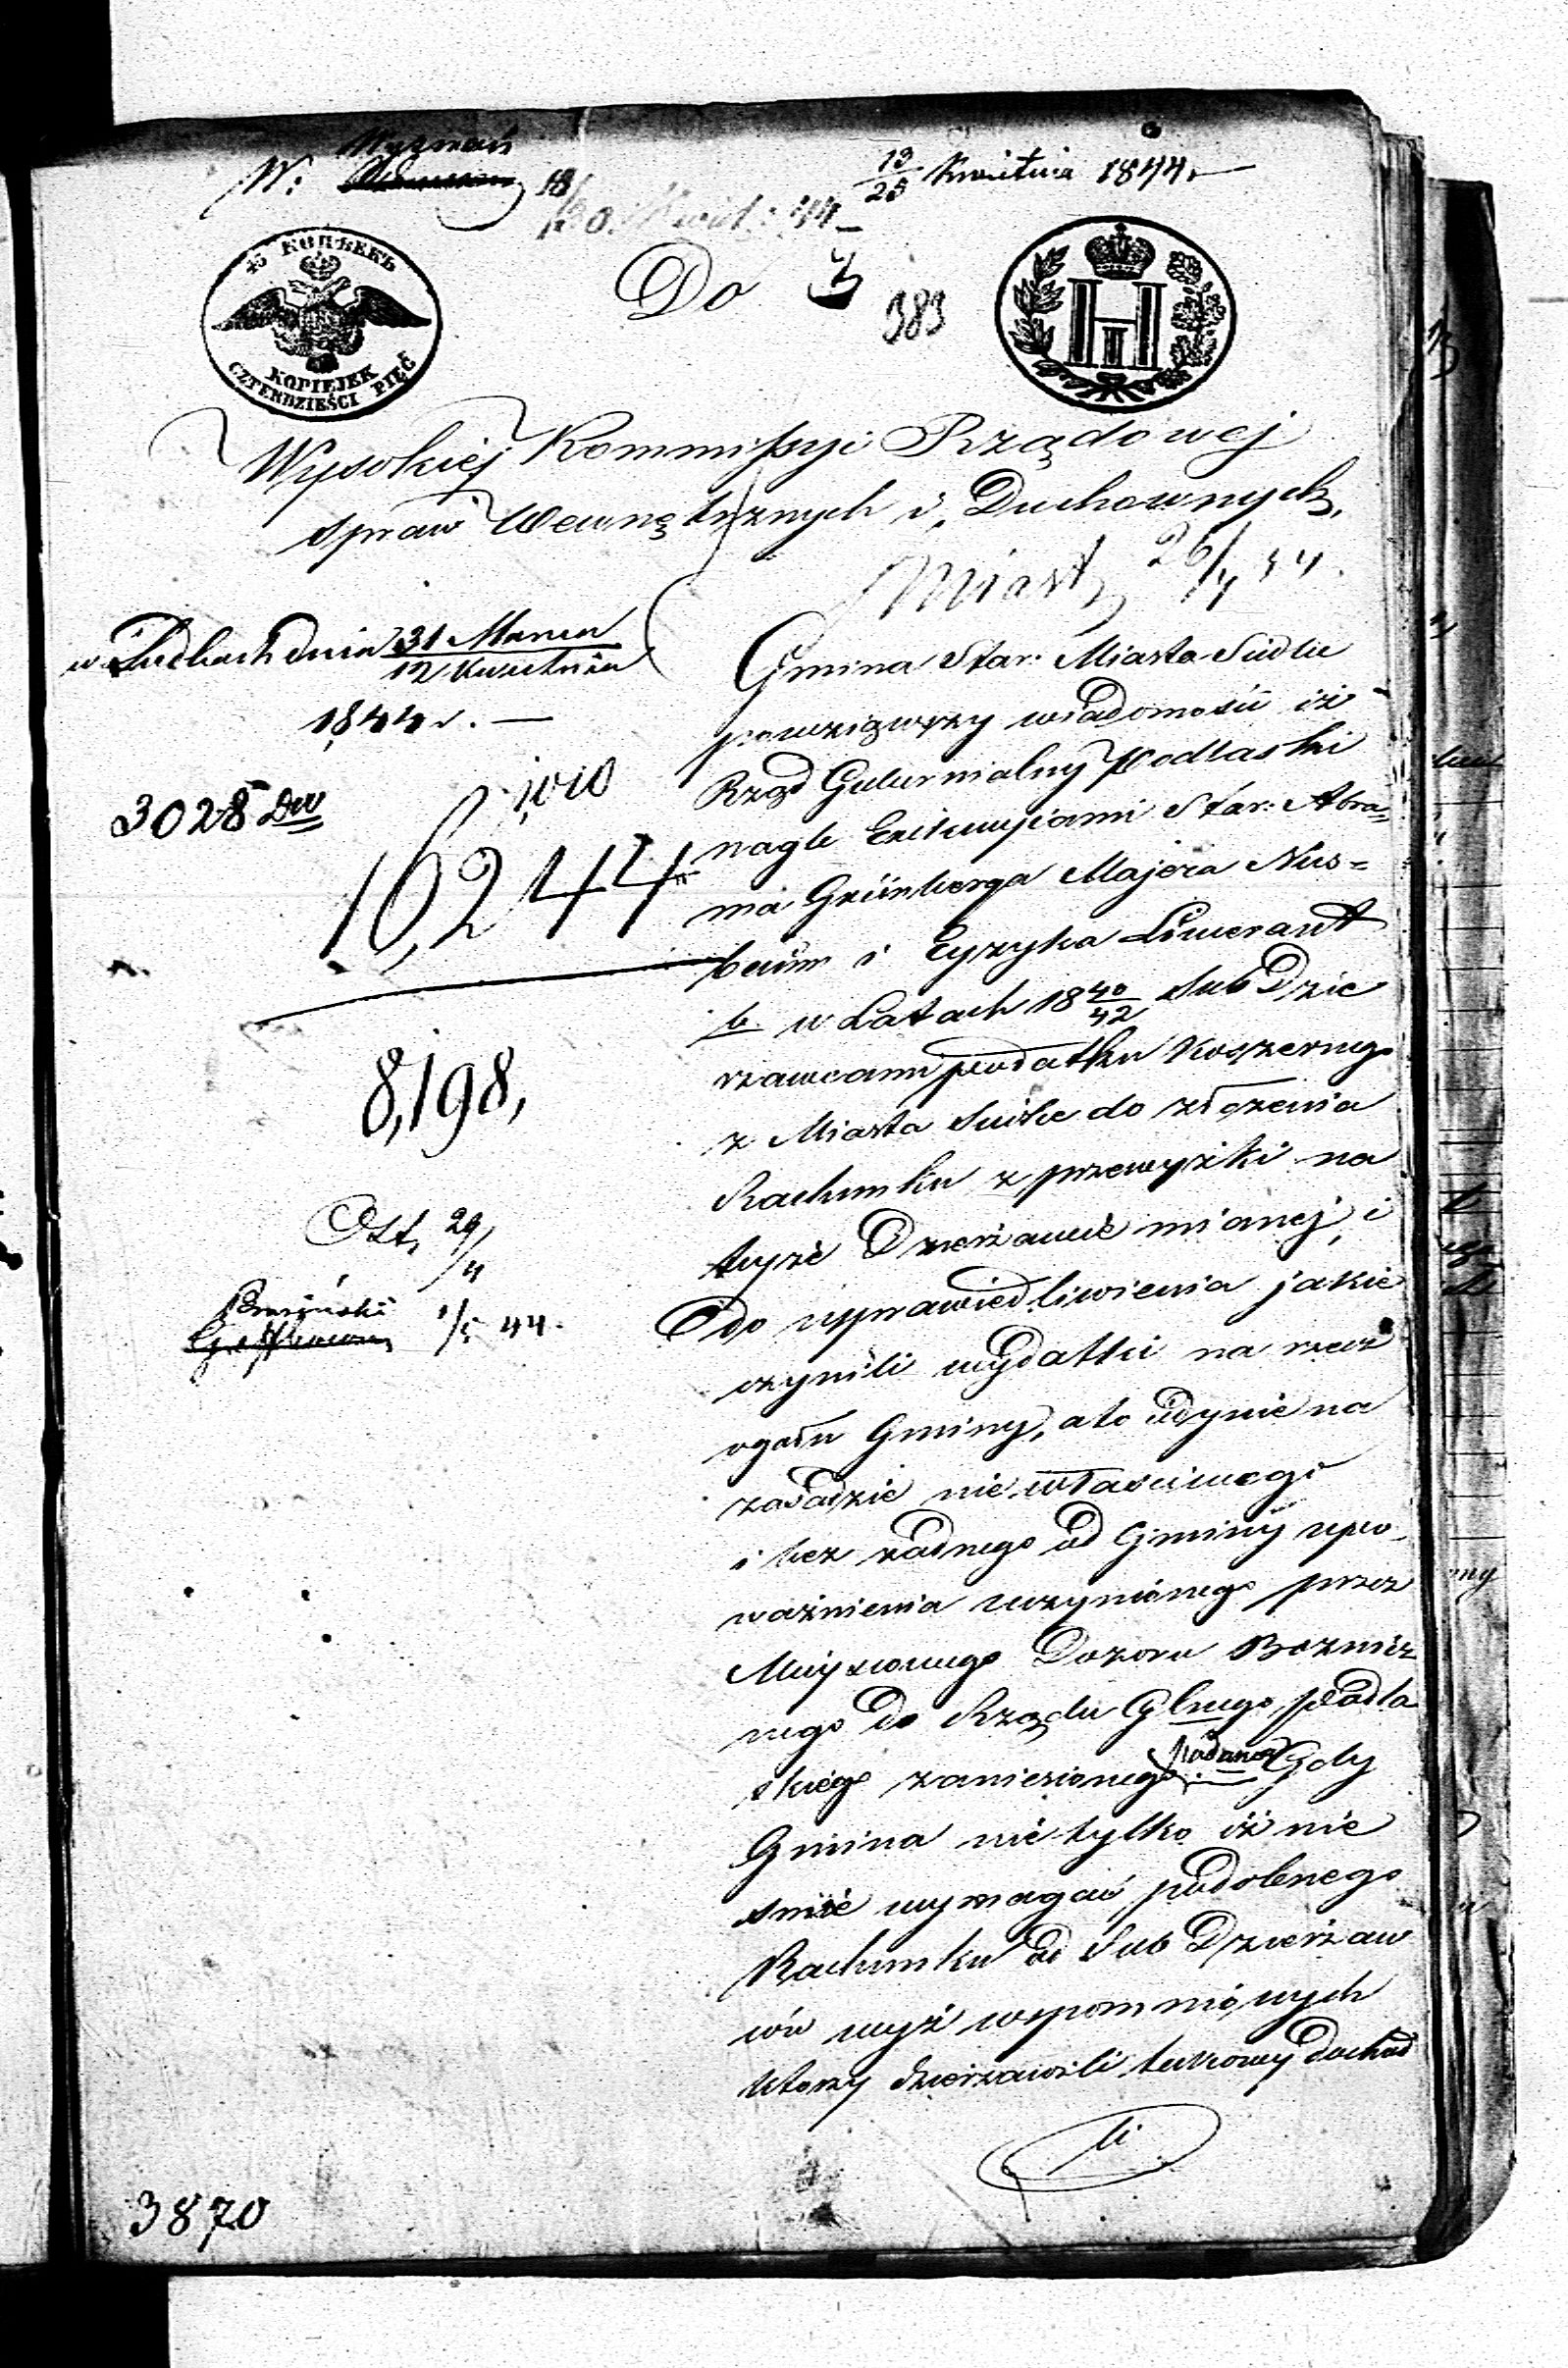 W: Wyznań
13/25 Kwietnia 1844 —
18/30 Kwiet: 44 —
45 КОПѢЕКЪ
KOPIEJEK
CZTERDZIEŚCI PIĘĆ
Do
383
H
III
Wysokiej Kommissyi Rządowej
spraw Wewnętrznych i Duchownych,
Miast 26/4 44.
w Siedlcach dnia 31 Marca
12 Kwietnia
1844 r. —
3028 Dw
16,244
8,198,
Ost, 29/4
1/5 44.
Gmina Star: Miasta Siedlce
powziąwszy wiadomość iż
Rząd Gubernialny Podlaski
nagle Exekucyiami Star: Abra=
ma Grünberga Majera Nus=
baum i Eyzyka Liwerant
b. w Latach 18 40/42 Sub Dzie
rzawcami podatku Koszernego
z Miasta Siedlce do złożenia
Rachunku z przewyżki na
tejże Dzierżawie mianej, i
do usprawiedliwienia jakie
czynili wydatki na rzecz
ogółu Gminy, a to jedynie na
zasadzie niewłaściwego
i bez żadnego od Gminy upo-
ważnienia uczynionego przez
Miejscowego Dozoru Bożnicz
nego do Rządu Gbnego Podla
skiego zaniesionego podania Gdy
Gmina nie tylko iż nie
smie wymagać podobnego
Rachunku od Sub Dzierżaw
ców wyż wspomnionych
którzy dzierżawili takowy dochód
3870